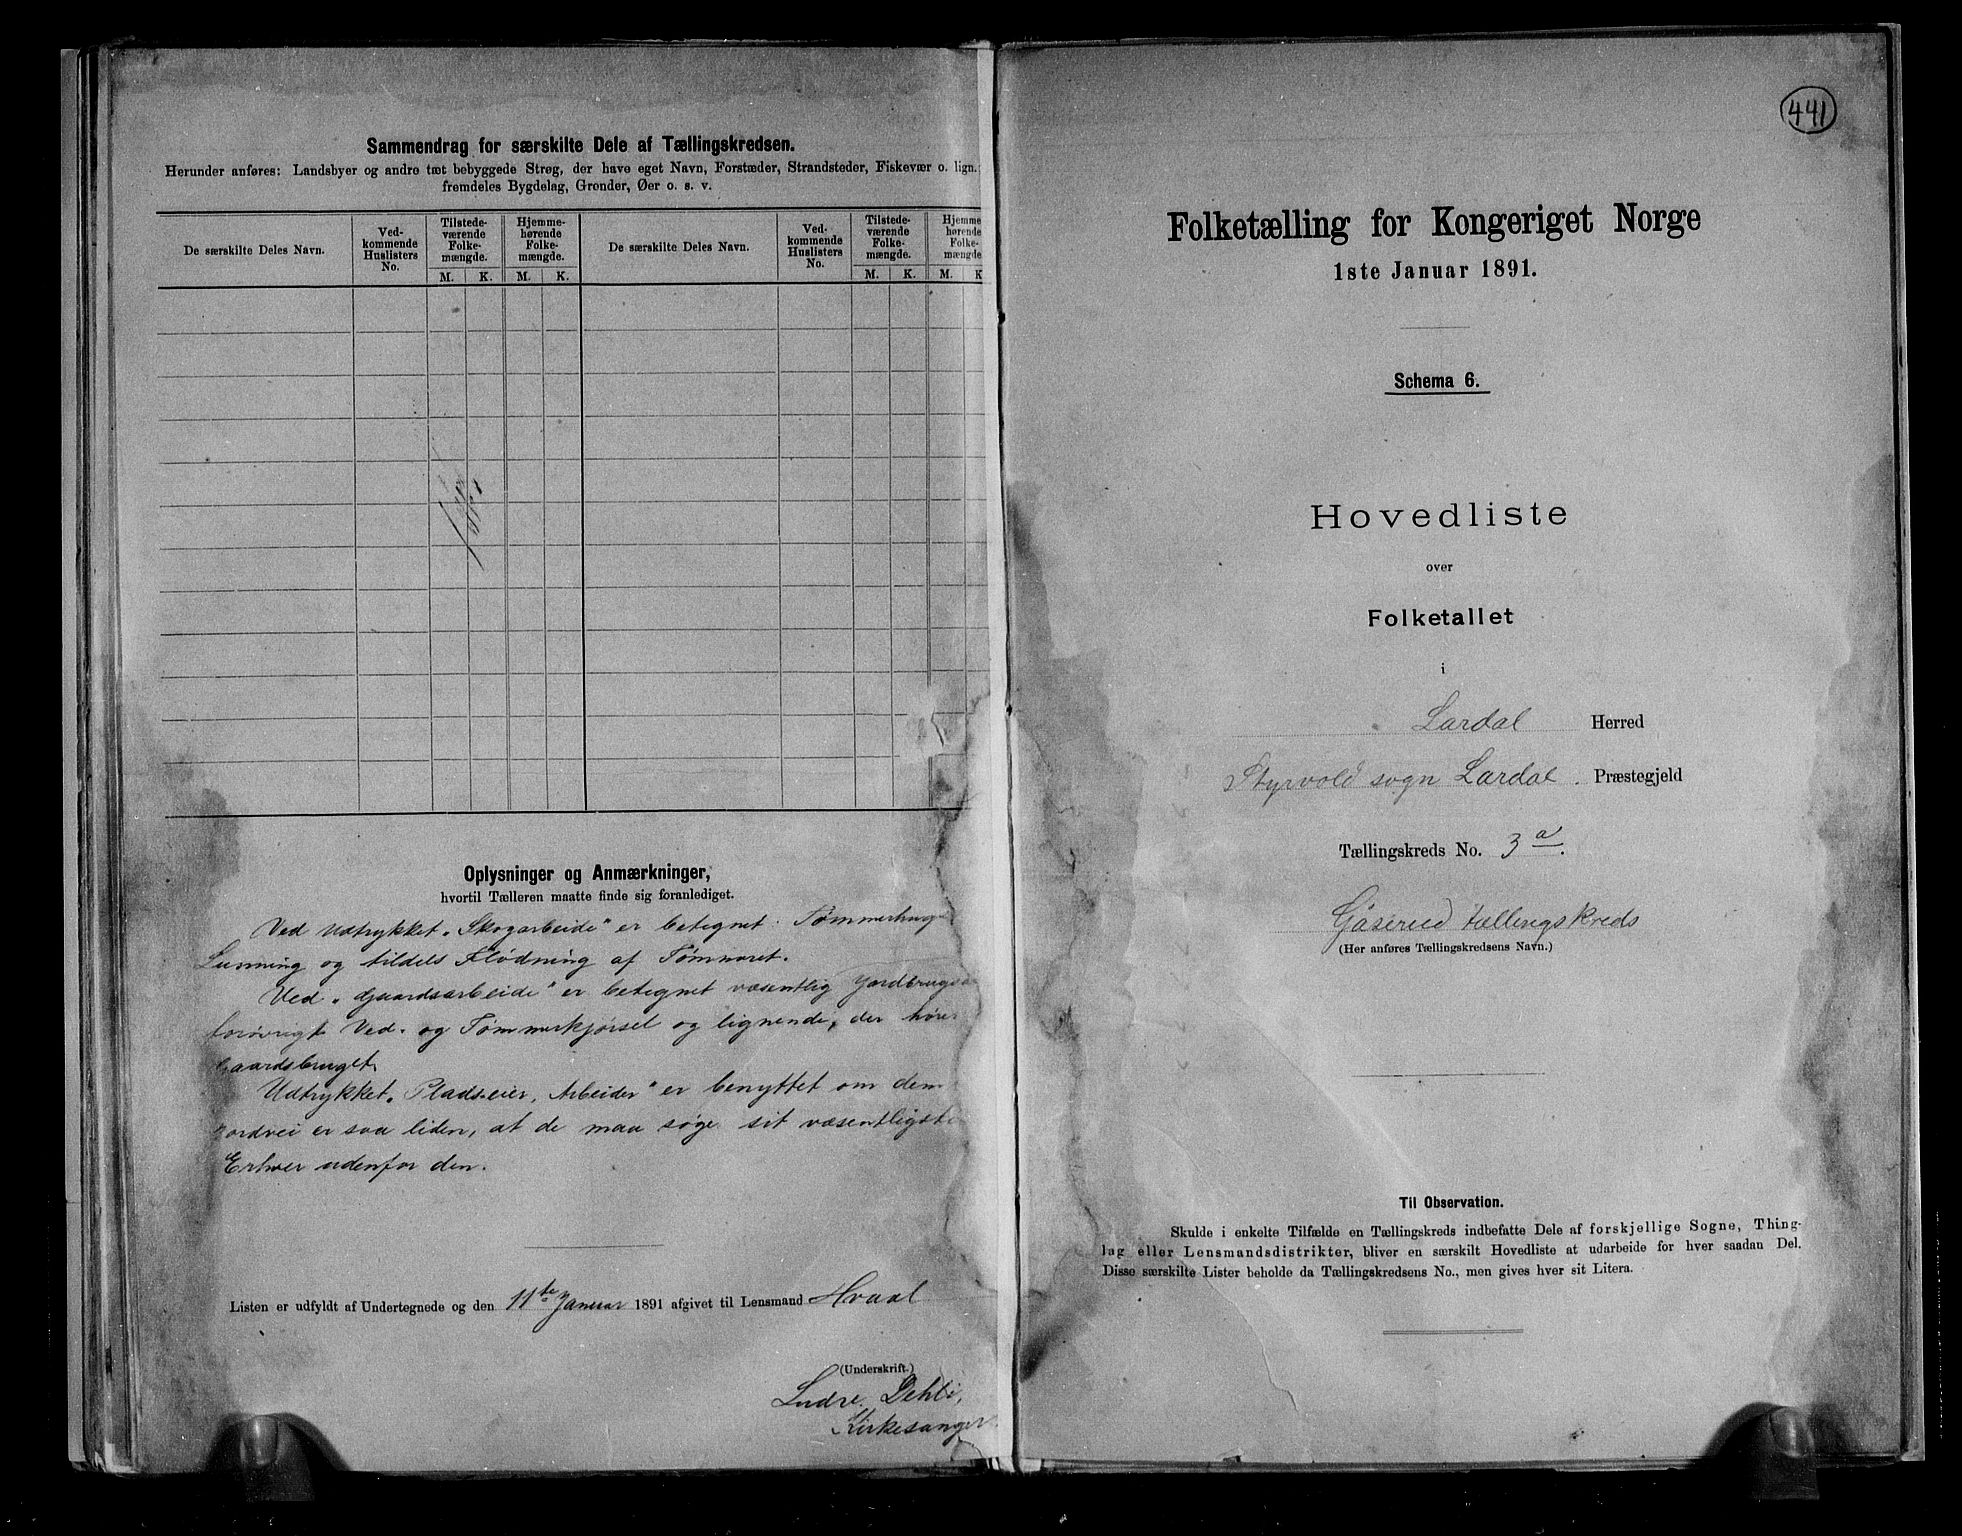 Sammendrag for særskilte Dele af Tællingskredsen.
Herunder anføres: Landsbyer og andre tæt bebyggede Strøg, der have eget Navn, Forstæder, Strandsteder, Fiskevær o. lign.;
fremdeles Bygdelag, Grender, Øer o. s. v.
De særskilte Deles Navn.
Ved-
kommende
Huslisters
No.
Tilstede-
værende
Folke-
mængde.
Hjemme-
hørende
Folke-
mængde.
De særskilte Deles Navn.
Ved-
kommende
Huslisters
No.
Tilstede-
værende
Folke-
mængde.
Hjemme-
hørende
Folke-
mængde
M. K. M. K. M. K. M. K
Oplysninger og Anmærkninger,
hvortil Tælleren maatte finde sig foranlediget.
Ved udtrykket "Skogarbeide" er betegnet: Tømmerhug
Lunning og tildels Flødning af Tømmeret.
Ved "Gaardsarbeide" er betegnet væsentlig Jordbrugs
forøvrigt Ved- og Tømmerkjørsel og lignende, der hører
Gaardsbruget.
Udtrykket "Pladseier, Arbeider" er benyttet om dem
Jordvei er saa liden, at de maa søge sit væsentligste
Erhver udenfor den.
Listen er udfyldt af Undertegnede og den 11te Januar 1891 afgivet til Lensmand Hvaal
(Underskrift.)
Ludv. Dehli,
Kirkesanger.
441
Folketælling for Kongeriget Norge
1ste Januar 1891.
Schema 6.
Hovedliste
over
Folketallet
i
Lardal Herred
Styrvold sogn Lardal. Præstegjeld
Tællingskreds No. 3 a.
Gåserud tællingskreds
(Her anføres Tællingskredsens Navn.)
Til Observation.
Skulde i enkelte Tilfælde en Tællingskreds indbefatte Dele af forskjellige Sogne, Thing-
lag eller Lensmandsdistrikter, bliver en særskilt Hovedliste at udarbeide for hver saadan Del.
Disse særskilte Lister beholde da Tællingskredsens No., men gives hver sit Litera.